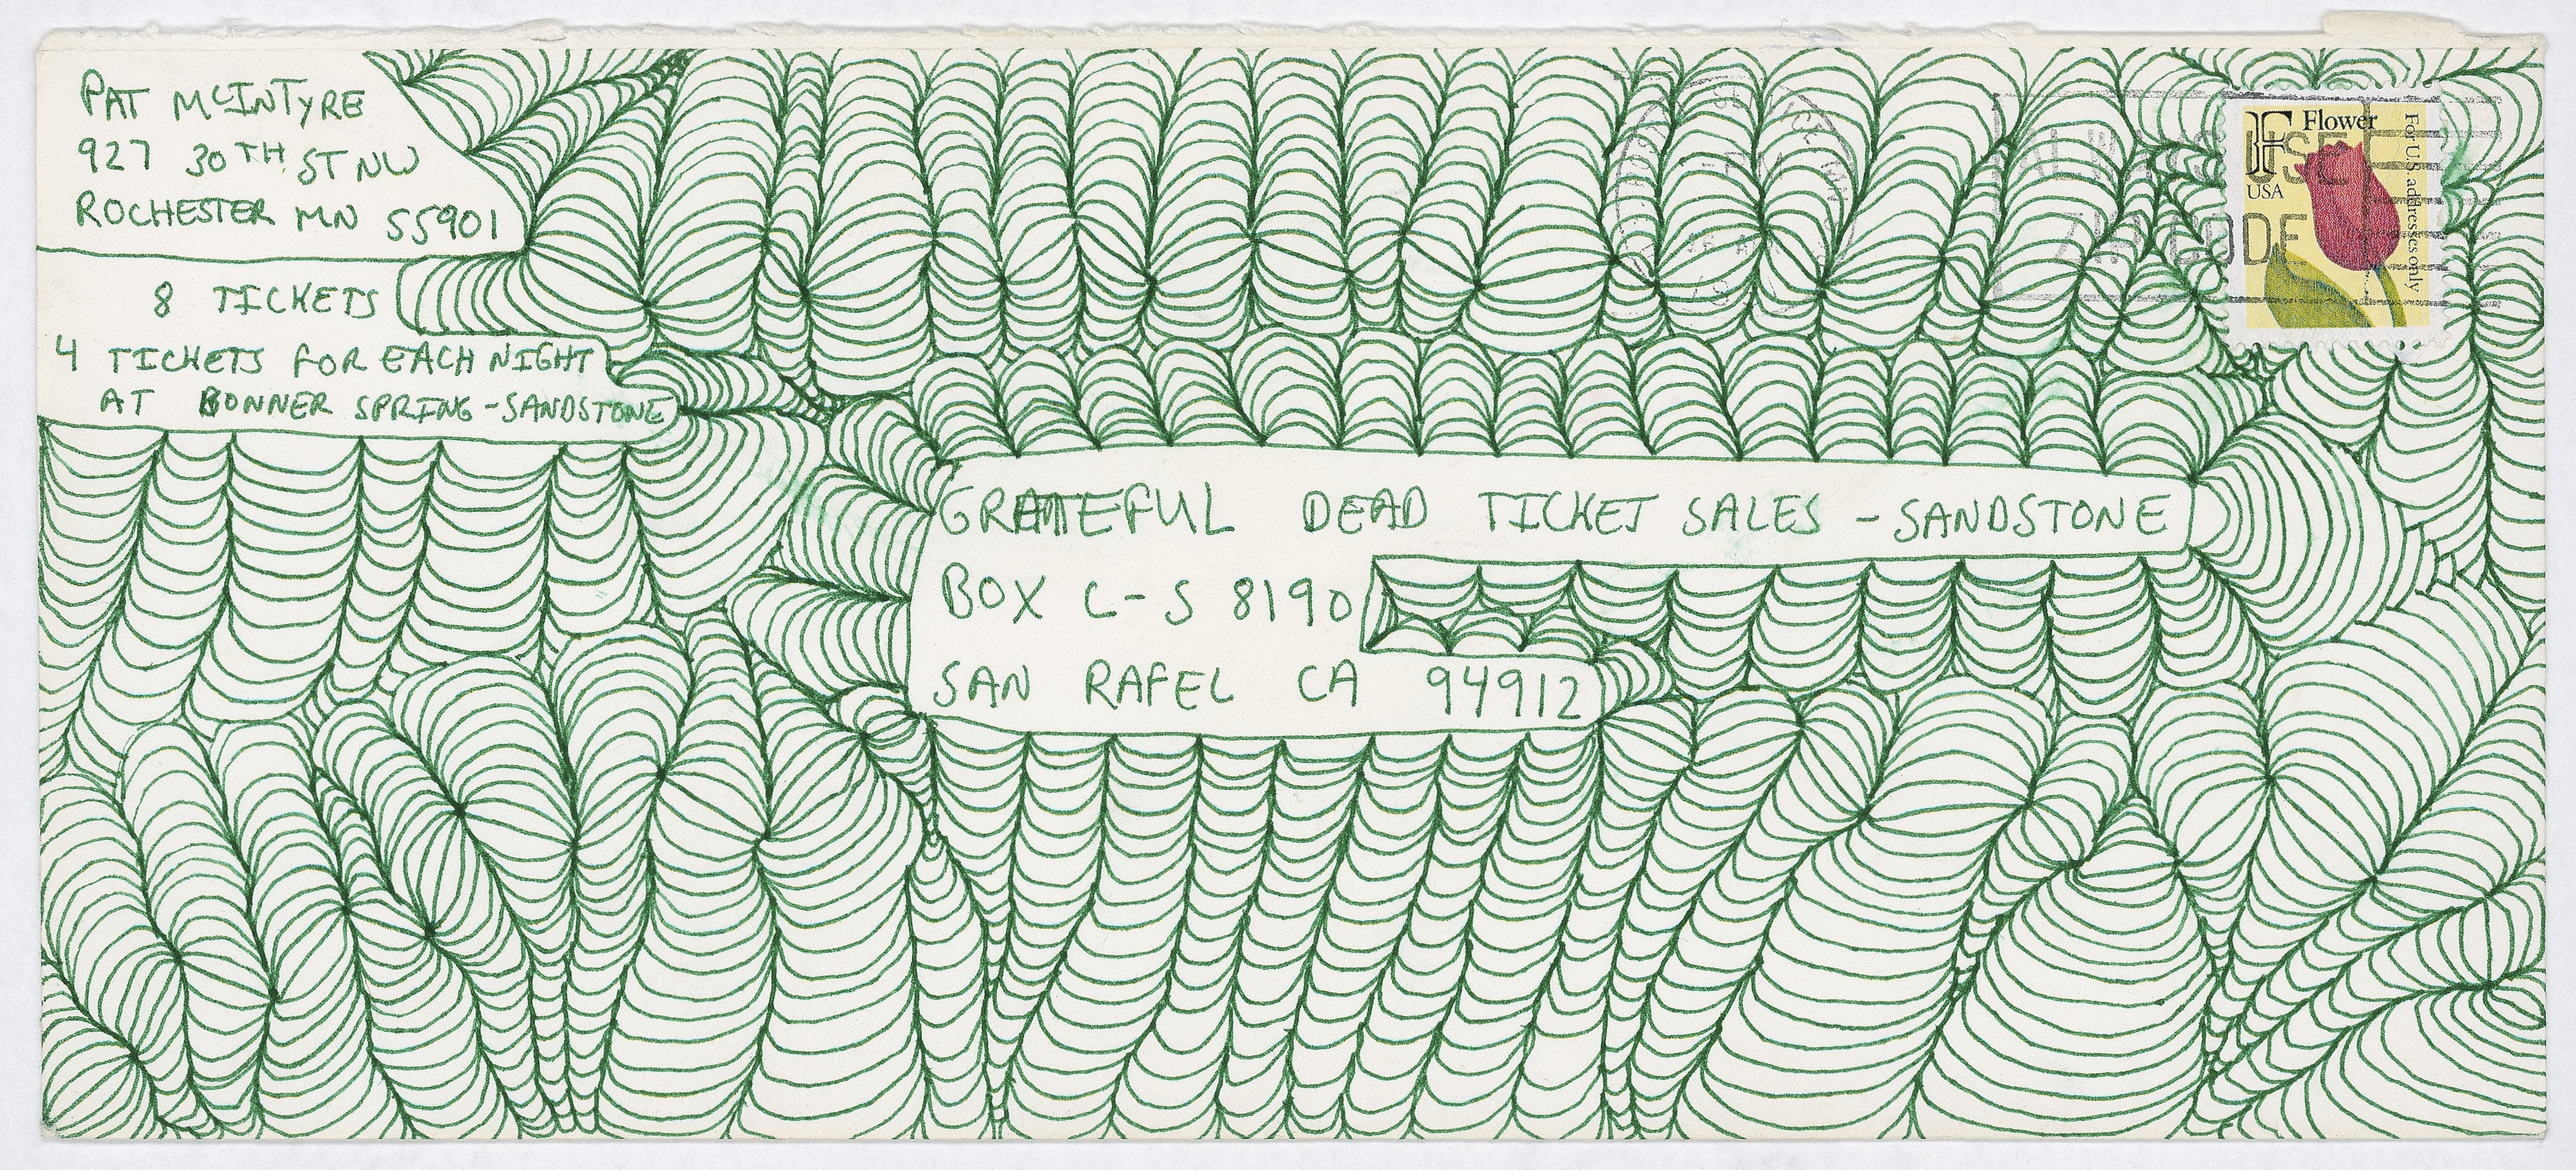 PAT MCINTYRE
927 30TH ST NW
ROCHESTER MN 55901
8 TICKETS
4 TICKETS FOR EACH NIGHT
AT BONNER SPRING - SANDSTONE
F Flower
USA
For U.S. addresses only
ALWAYS USE
ZIP CODE
GRATEFUL DEAD TICKET SALES - SANDSTONE
BOX C-S 8190
SAN RAFEL CA 94912